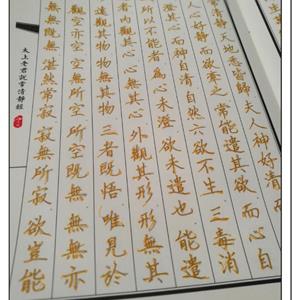 常清靜天地悉皆歸夫人神好清而
人心好靜而欲牽之常能遣其欲而心自
澄其心而神自清自然六欲不生三毒消
所以不能者為心未澄欲未遣也能遣
者內觀其心心無其心外觀其形形無其
遠觀其物物無其物三者既悟唯見於
觀空亦空空無所空所空既無無無亦
無無既無湛然常寂寂無所寂欲豈能
太上老君說常清靜經